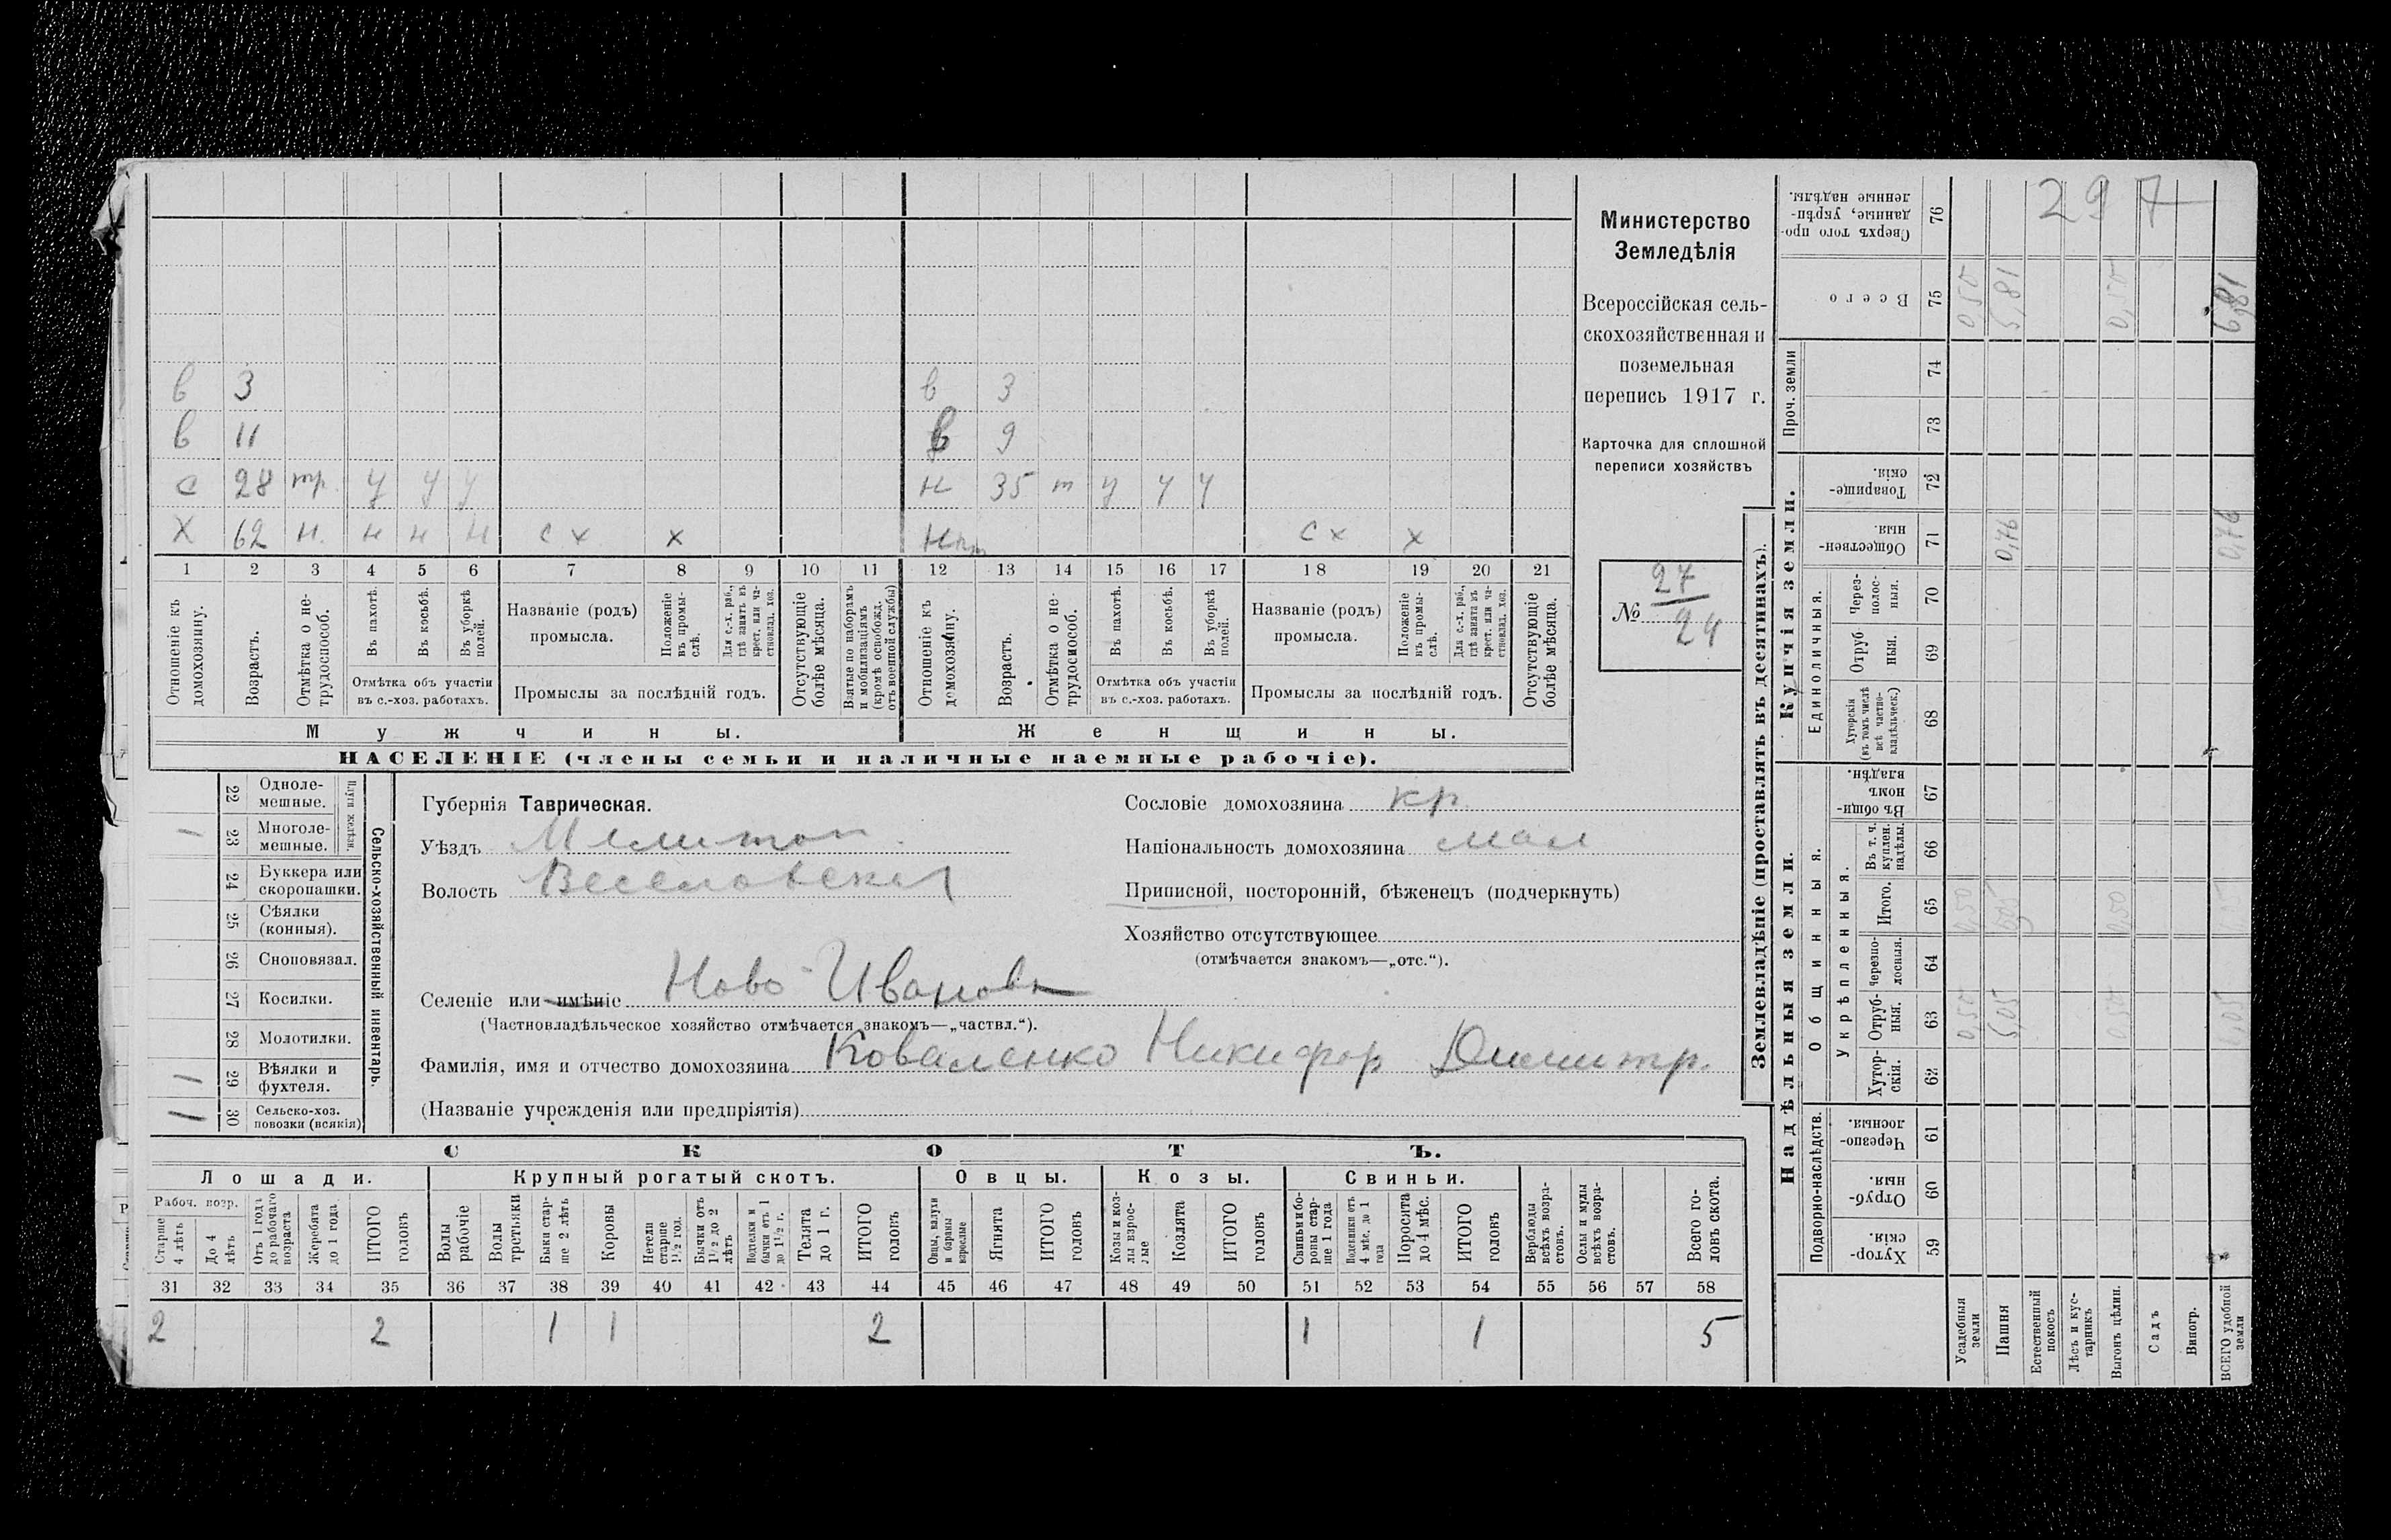 Министерство
Земледѣлія
Всероссійская сель-
скохозяйственная и
поземельная
перепись 1917 г.
Карточка для сплошной
переписи хозяйствъ
№ 27
24
297
в 3 в 3
в 11 в 9
с 28 тр. у у у н 35 т у у у
х 62 н. н н н сх х сх х
1 2 3 4 5 6 7 8 9 10 11 12 13 14 15 16 17 18 19 20 21
Отношеніе къ домохозяину.
Возрастъ.
Отмѣтка о не-трудоспособ.
Въ пахотѣ.
Въ косьбѣ.
Въ уборкѣ полей.
Отмѣтка объ участіи въ с.-хоз. работахъ.
Названіе (родъ) промысла.
Положеніе въ промы-слѣ.
Для с.-х. раб., гдѣ занятъ въ крест. или ча-стновлад. хоз.
Промыслы за послѣдній годъ.
Отсутствующіе болѣе мѣсяца.
Взятые по наборамъ и мобилизаціямъ (кромѣ освобожд. отъ военной службы)
Отношеніе къ домохозяину.
Возрастъ.
Отмѣтка о не-трудоспособ.
Въ пахотѣ.
Въ косьбѣ.
Въ уборкѣ полей.
Отмѣтка объ участіи въ с.-хоз. работахъ.
Названіе (родъ) промысла.
Положеніе въ промы-слѣ.
Для с.-х. раб., гдѣ занята въ крест. или ча-стновлад. хоз.
Промыслы за послѣдній годъ.
Отсутствующіе болѣе мѣсяца.
Мужчины. Женщины.
НАСЕЛЕНІЕ (члены семьи и наличные наемные рабочіе).
Сельско-хозяйственный инвентарь.
Плуги желѣзн.
22 Одноле-мешные.
23 Многоле-мешные. 1
24 Буккера или скоропашки.
25 Сѣялки (конныя).
26 Сноповязал.
27 Косилки.
28 Молотилки.
29 Вѣялки и фухтеля. 1
30 Сельско-хоз. повозки (всякія) 1
Губернія Таврическая.
Уѣздъ Мелитоп
Волость Веселовская
Сословіе домохозяина кр
Національность домохозяина мал
Приписной, посторонній, бѣженецъ (подчеркнуть)
Хозяйство отсутствующее
(отмѣчается знакомъ—„отс.“).
Селеніе или имѣніе Ново-Ивановк
(Частновладѣльческое хозяйство отмѣчается знакомъ—„частвл.“).
Фамилія, имя и отчество домохозяина Коваленко Никифор Димитр.
(Названіе учрежденія или предпріятія)
СКОТЪ.
Лошади. Крупный рогатый скотъ. Овцы. Козы. Свиньи.
Рабоч. возр.
Старше 4 лѣтъ
До 4 лѣтъ
Отъ 1 года до рабочаго возраста
Жеребята до 1 года
ИТОГО головъ
Волы рабочіе
Волы третьяки
Быки стар-ше 2 лѣтъ
Коровы
Нетели старше 1½ год.
Бычки отъ 1½ до 2 лѣтъ
Подтелки и бычки отъ 1 до 1½ г.
Телята до 1 г.
ИТОГО головъ
Овцы, валухи и бараны взрослые
Ягнята
ИТОГО головъ
Козы и коз-лы взрос-лые
Козлята
ИТОГО головъ
Свиньи и бо-ровы стар-ше 1 года
Подсвинки отъ 4 мѣс. до 1 года
Поросята до 4 мѣс.
ИТОГО головъ
Верблюды всѣхъ возра-стовъ.
Ослы и мулы всѣхъ возра-стовъ.
Всего го-ловъ скота.
31 32 33 34 35 36 37 38 39 40 41 42 43 44 45 46 47 48 49 50 51 52 53 54 55 56 57 58
2 2 1 1 2 1 1 5
Землевладѣніе (проставлять въ десятинахъ).
Надѣльныя земли. Купчія земли.
Подворно-наслѣдств.
Общинныя.
Укрѣпленныя.
Единоличныя.
Проч. земли
Хутор-скія. 59
Отруб-ныя. 60
Черезпо-лосныя. 61
Хутор-скія. 62
Отруб-ныя. 63
Черезпо-лосныя. 64
Итого. 65
Въ т. ч. куплен. надѣлы. 66
Въ общи-номъ владѣн. 67
Хуторскія (въ томъ числѣ всѣ частно-владѣльческ.) 68
Отруб ныя. 69
Через-полос-ныя. 70
Обществен-ныя. 71
Товарище-скія. 72
73
74
Всего 75
Сверхъ того про-данные, укрѣп-ленные надѣлы. 76
Усадебныя земли 0,50 0,50 0,50
Пашня 5,05 5,05 0,76 5,81
Естественный покосъ
Лѣсъ и кус-тарникъ
Выгонъ цѣлин. 0,50 0,50 0,50
Садъ
Виногр.
ВСЕГО удобной земли 6,05 6,05 0,76 6,81